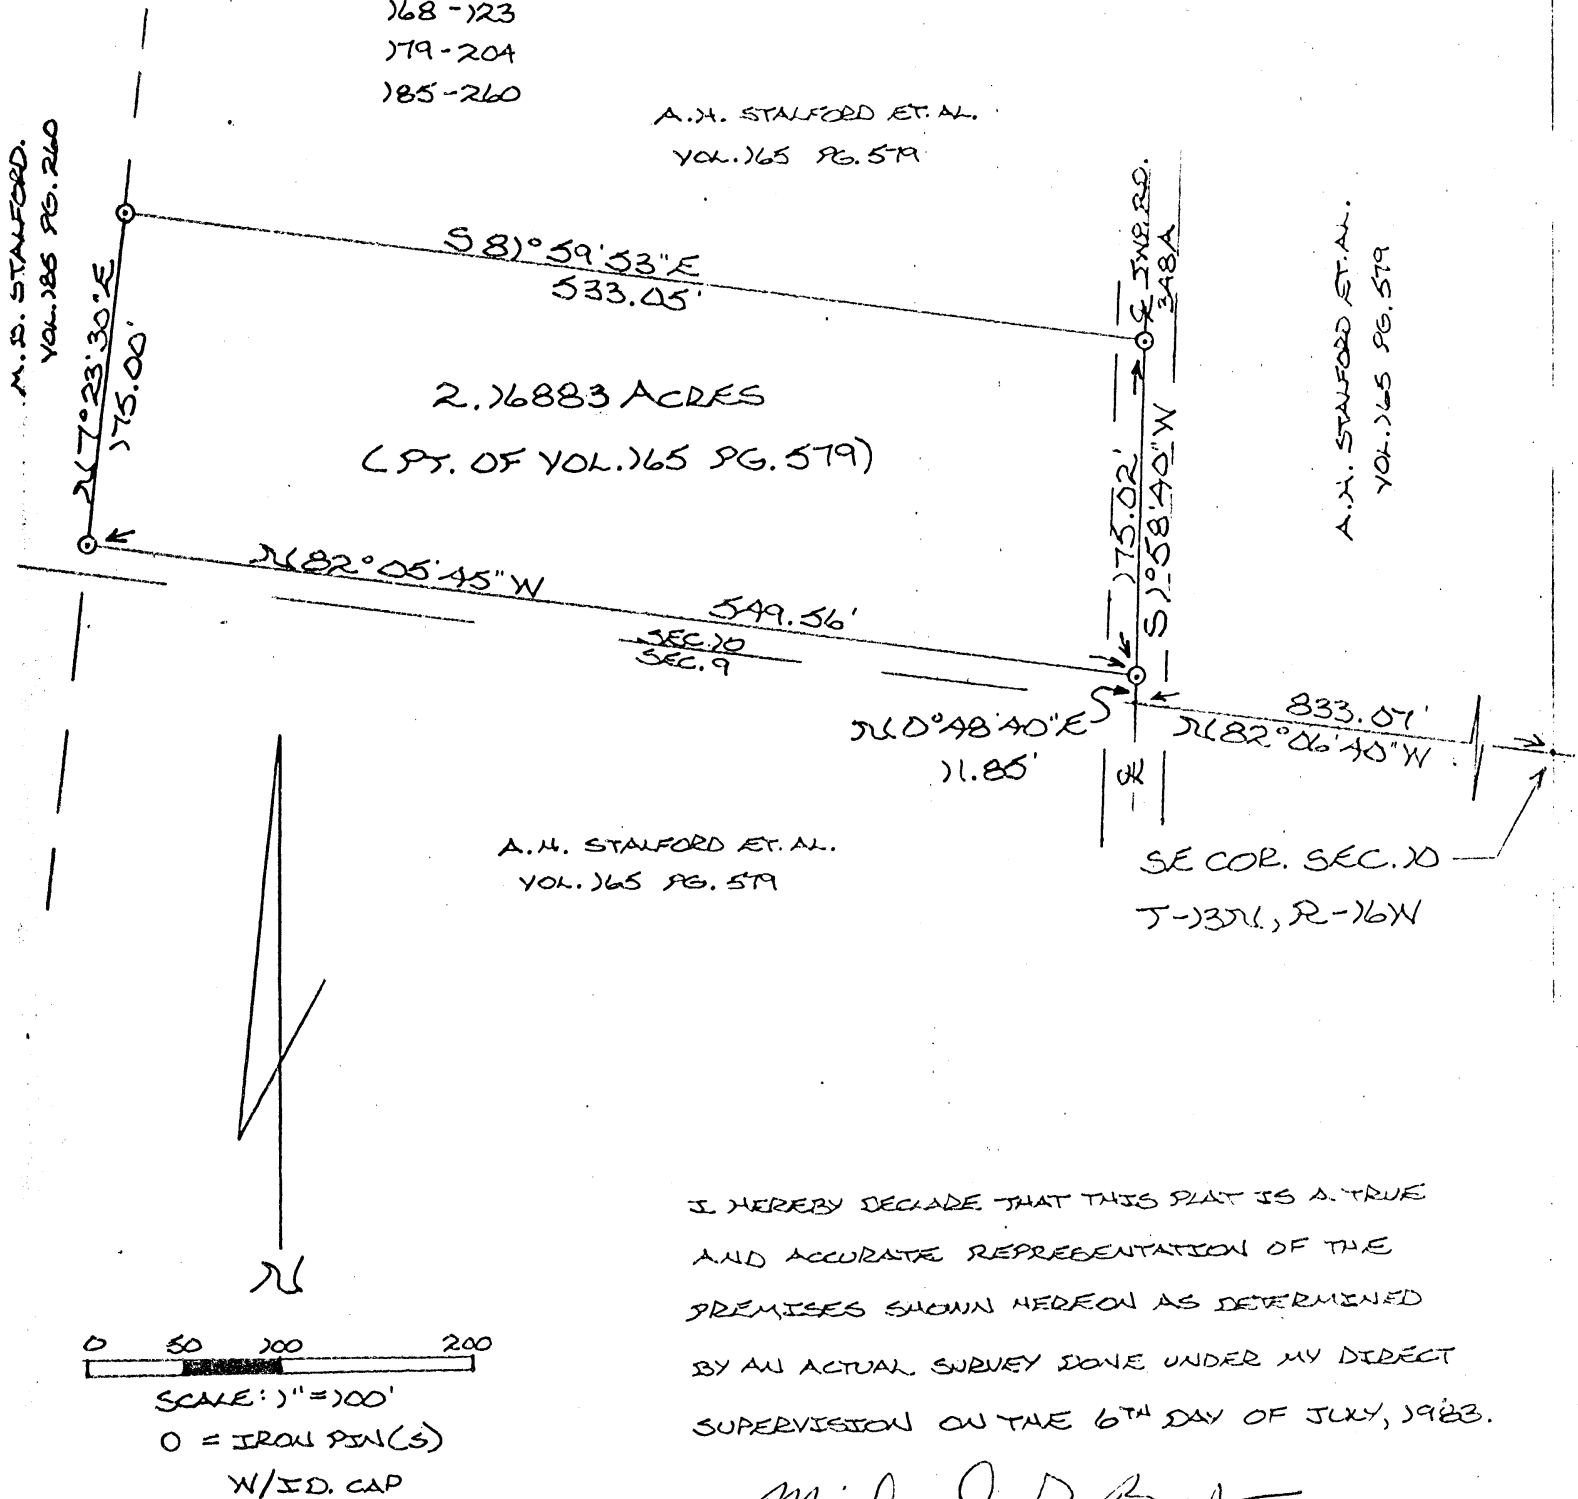 168-123
179-204
185-260
A.H. STALFORD ET. AL.
VOL. 165 PG. 579
M.D. STALFORD.
VOL. 185 PG. 260
S 81° 59' 53" E
533.05'
N 7° 23' 30" E
175.00'
℄ TWP. RD.
348A
2.16883 ACRES
(PT. OF VOL. 165 PG. 579)
175.02'
S 1° 58' 40" W
A.H. STALFORD ET. AL.
VOL. 165 PG. 579
N 82° 05' 45" W
549.56'
SEC. 10
SEC. 9
N 0° 48' 40" E
11.85'
833.07'
N 82° 06' 40" W
℄
A.H. STALFORD ET. AL.
VOL. 165 PG. 579
SE COR. SEC. 10
T-13N, R-16W
N
0 50 100 200
SCALE: 1" = 100'
O = IRON PIN(S)
W/I.D. CAP
I HEREBY DECLARE THAT THIS PLAT IS A TRUE
AND ACCURATE REPRESENTATION OF THE
PREMISES SHOWN HEREON AS DETERMINED
BY AN ACTUAL SURVEY DONE UNDER MY DIRECT
SUPERVISION ON THE 6TH DAY OF JULY, 1983.